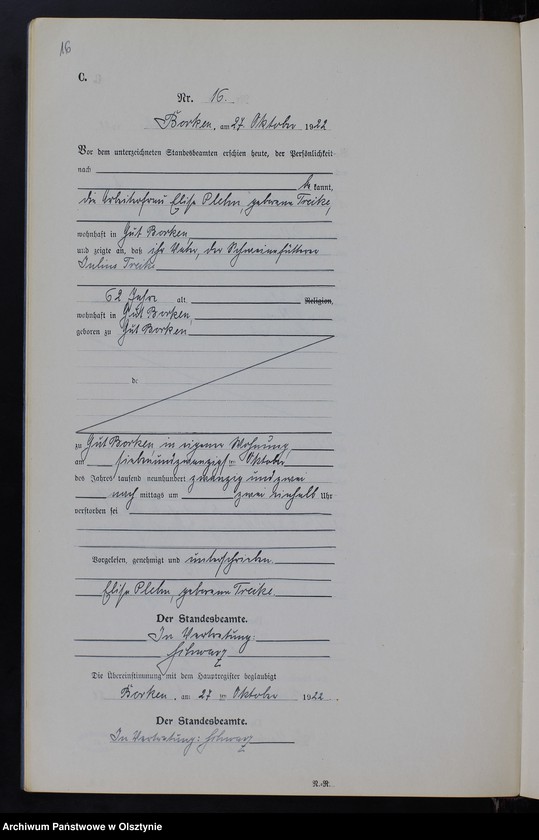 16
C.
Nr. 16.
Borken, am 27 Oktober 1922
Vor dem unterzeichneten Standesbeamten erschien heute, der Persönlichkeit
nach
be kannt,
die Arbeiterfrau Elise Plehn, geborene Treike,
wohnhaft in Gut Borken,
und zeigte an, daß ihr Vater, der Schweinefütterer
Julius Treike
62 Jahre alt, Religion,
wohnhaft in Gut Borken,
geboren zu Gut Borken
de
zu Gut Borken in eigener Wohnung,
am siebenundzwanzigsten Oktober
des Jahres tausend neunhundert zwanzig und zwei
nach mittags um zwei einhalb Uhr
verstorben sei
Vorgelesen, genehmigt und unterschrieben.
Elise Plehn, geborene Treike
Der Standesbeamte.
In Vertretung:
Schwarz
Die Übereinstimmung mit dem Hauptregister beglaubigt
Borken, am 27 ten Oktober 1922.
Der Standesbeamte.
In Vertretung: Schwarz
N.-R.
Archiwum Państwowe w Olsztynie